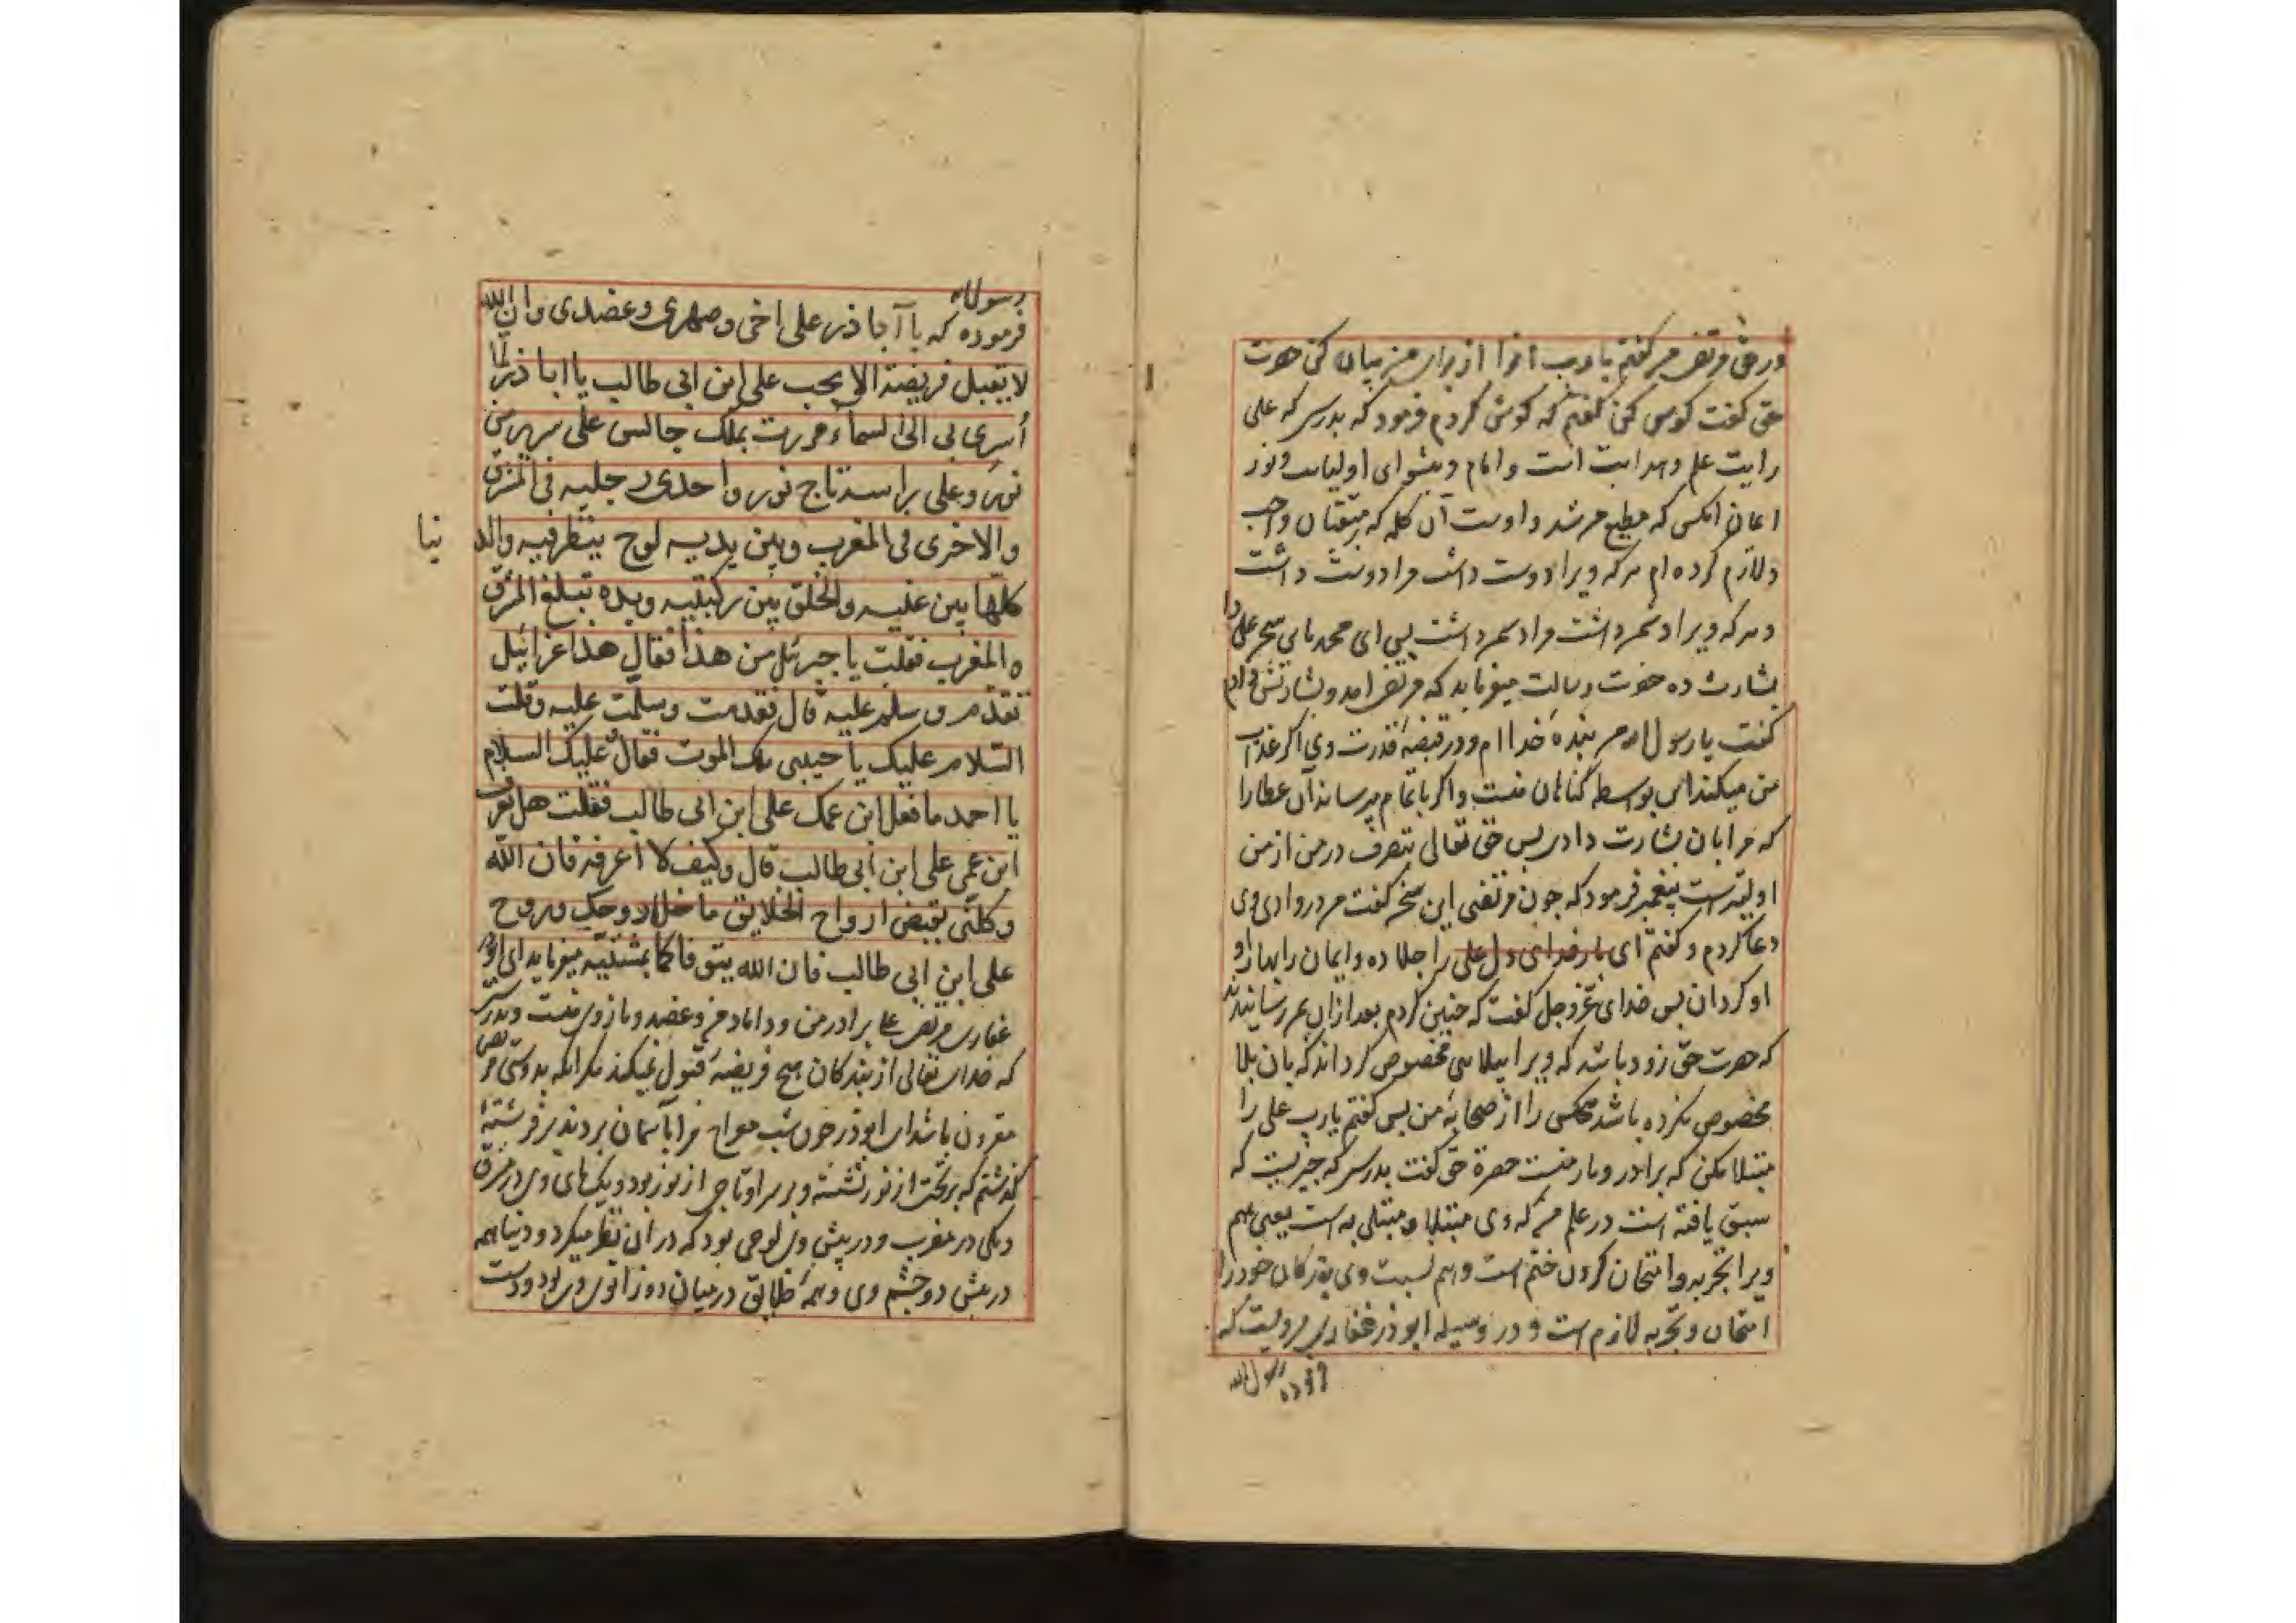 در حق مرتضی من گفتم یا رب انرا از برای من بیان کن حضرت
حق گفت گوش کن گفتم که گوش کردم فرمود که بدرستی که علی
رایت علم و هدایت است و امام و پیشوای اولیاست و نور
ایمان انکس که مطیع من شد و اوست آن کلمه که بر متقیان واجب
و لازم کرده ام هر که ویرا دوست داشت مرا دوست داشت
و هر که ویرا دشمن داشت مرا دشمن داشت پس ای محمد باین سخن علی را
بشارت ده حضرت رسالت میفرماید که مرتضی امد و بشارتش دادم
گفت یا رسول الله من بنده خدا ام و در قبضه قدرت وی اگر عذاب
من میکند ان بواسطه گناهان منست و اگر باتمام میرساند آن عطا را
که مرا بان بشارت دادی پس حق تعالی بتصرف در من از من
اولیترست پیغمبر فرمود که چون مرتضی این سخن گفت من در وادی وی
دعا کردم و گفتم ای بار خدای دل علی را جلا ده و ایمان را بهار او
او کردان پس خدای عزوجل گفت که چنین کردم بعد ازان بمن رسانیدند
که حضرت حق زود باشد که ویرا ببلائی مخصوص کرداند که بان بلا
مخصوص نکرده باشد هیچکس را از صحابه من پس گفتم یا رب علی را
مبتلا مکن که برادر و یار منست حضرة حق گفت بدرستی که چیزیست که
سبق یافته است در علم من که وی مبتلا و مبتلی به است یعنی هم
ویرا تجربه و امتحان کردن ختم است و هم نسبت وی بقدر کمال خود را
امتحان و تجربه لازم است و در وسیله ابوذر غفاری مرویست که
فرموده رسول الله
رسول الله
فرموده که یا آبا ذر علی اخی و صهری و عضدی و ان الله
لا یقبل فریضة الا بحب علی ابن ابی طالب یا ابا ذر لما
أسری بی الی السماء مررت بملک جالس علی سریر من
نور و علی راسه تاج نور و احدی رجلیه فی المشرق
والاخری فی المغرب و بین یدیه لوح ینظر فیه والد نیا
کلها بین عینیه والخلق بین رکبتیه و یده تبلغ المشرق
والمغرب فقلت یا جبرئیل من هذا فقال هذا عزرائیل
تقدم و سلم علیه قال فقدمت و سلمت علیه و قلت
السّلام علیک یا حبیبی ملک الموت فقال علیک السلام
یا احمد ما فعل ابن عمک علی ابن ابی طالب فقلت هل تعرف
ابن عمی علی ابن ابی طالب قال و کیف لا أعرفه فان الله
وکلنی بقبض ارواح الخلایق ما خلا روحک و روح
علی ابن ابی طالب فان الله یتوفاکما بمشیّته میفرماید ای ابوذر
غفاری مرتضی علی برادر من و داماد من و عضد و بازوی منست و بدرستی
که خدای تعالی از بندکان هیچ فریضه قبول نمیکند مگر انکه بدوستی مرتضی
مقرون باشد ای ابوذر چون شب معراج مرا بآسمان بردند بر فرشته
گذشتم که بر تخت از نور نشسته و بر سر او تاجی از نور بود و یک پای وی در مشرق
و یکی در مغرب و در پیش وی لوحی بود که در ان نظر میکرد و دنیا همه
در پیش دو چشم وی و همه خلایق در میان دو زانوی وی بود و دست